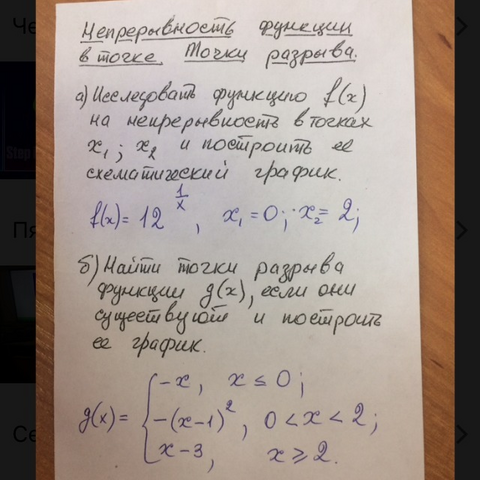 Непрерывность функции
в точке. Точки разрыва.
а) Исследовать функцию f(x)
на непрерывность в точках
x₁; x₂ и построить ее
схематический график.
f(x) = 12^(1/x), x₁ = 0; x₂ = 2;
б) Найти точки разрыва
функции g(x), если они
существуют и построить
ее график.
-x, x ≤ 0;
g(x) = { -(x-1)², 0 < x < 2;
x-3, x ≥ 2.